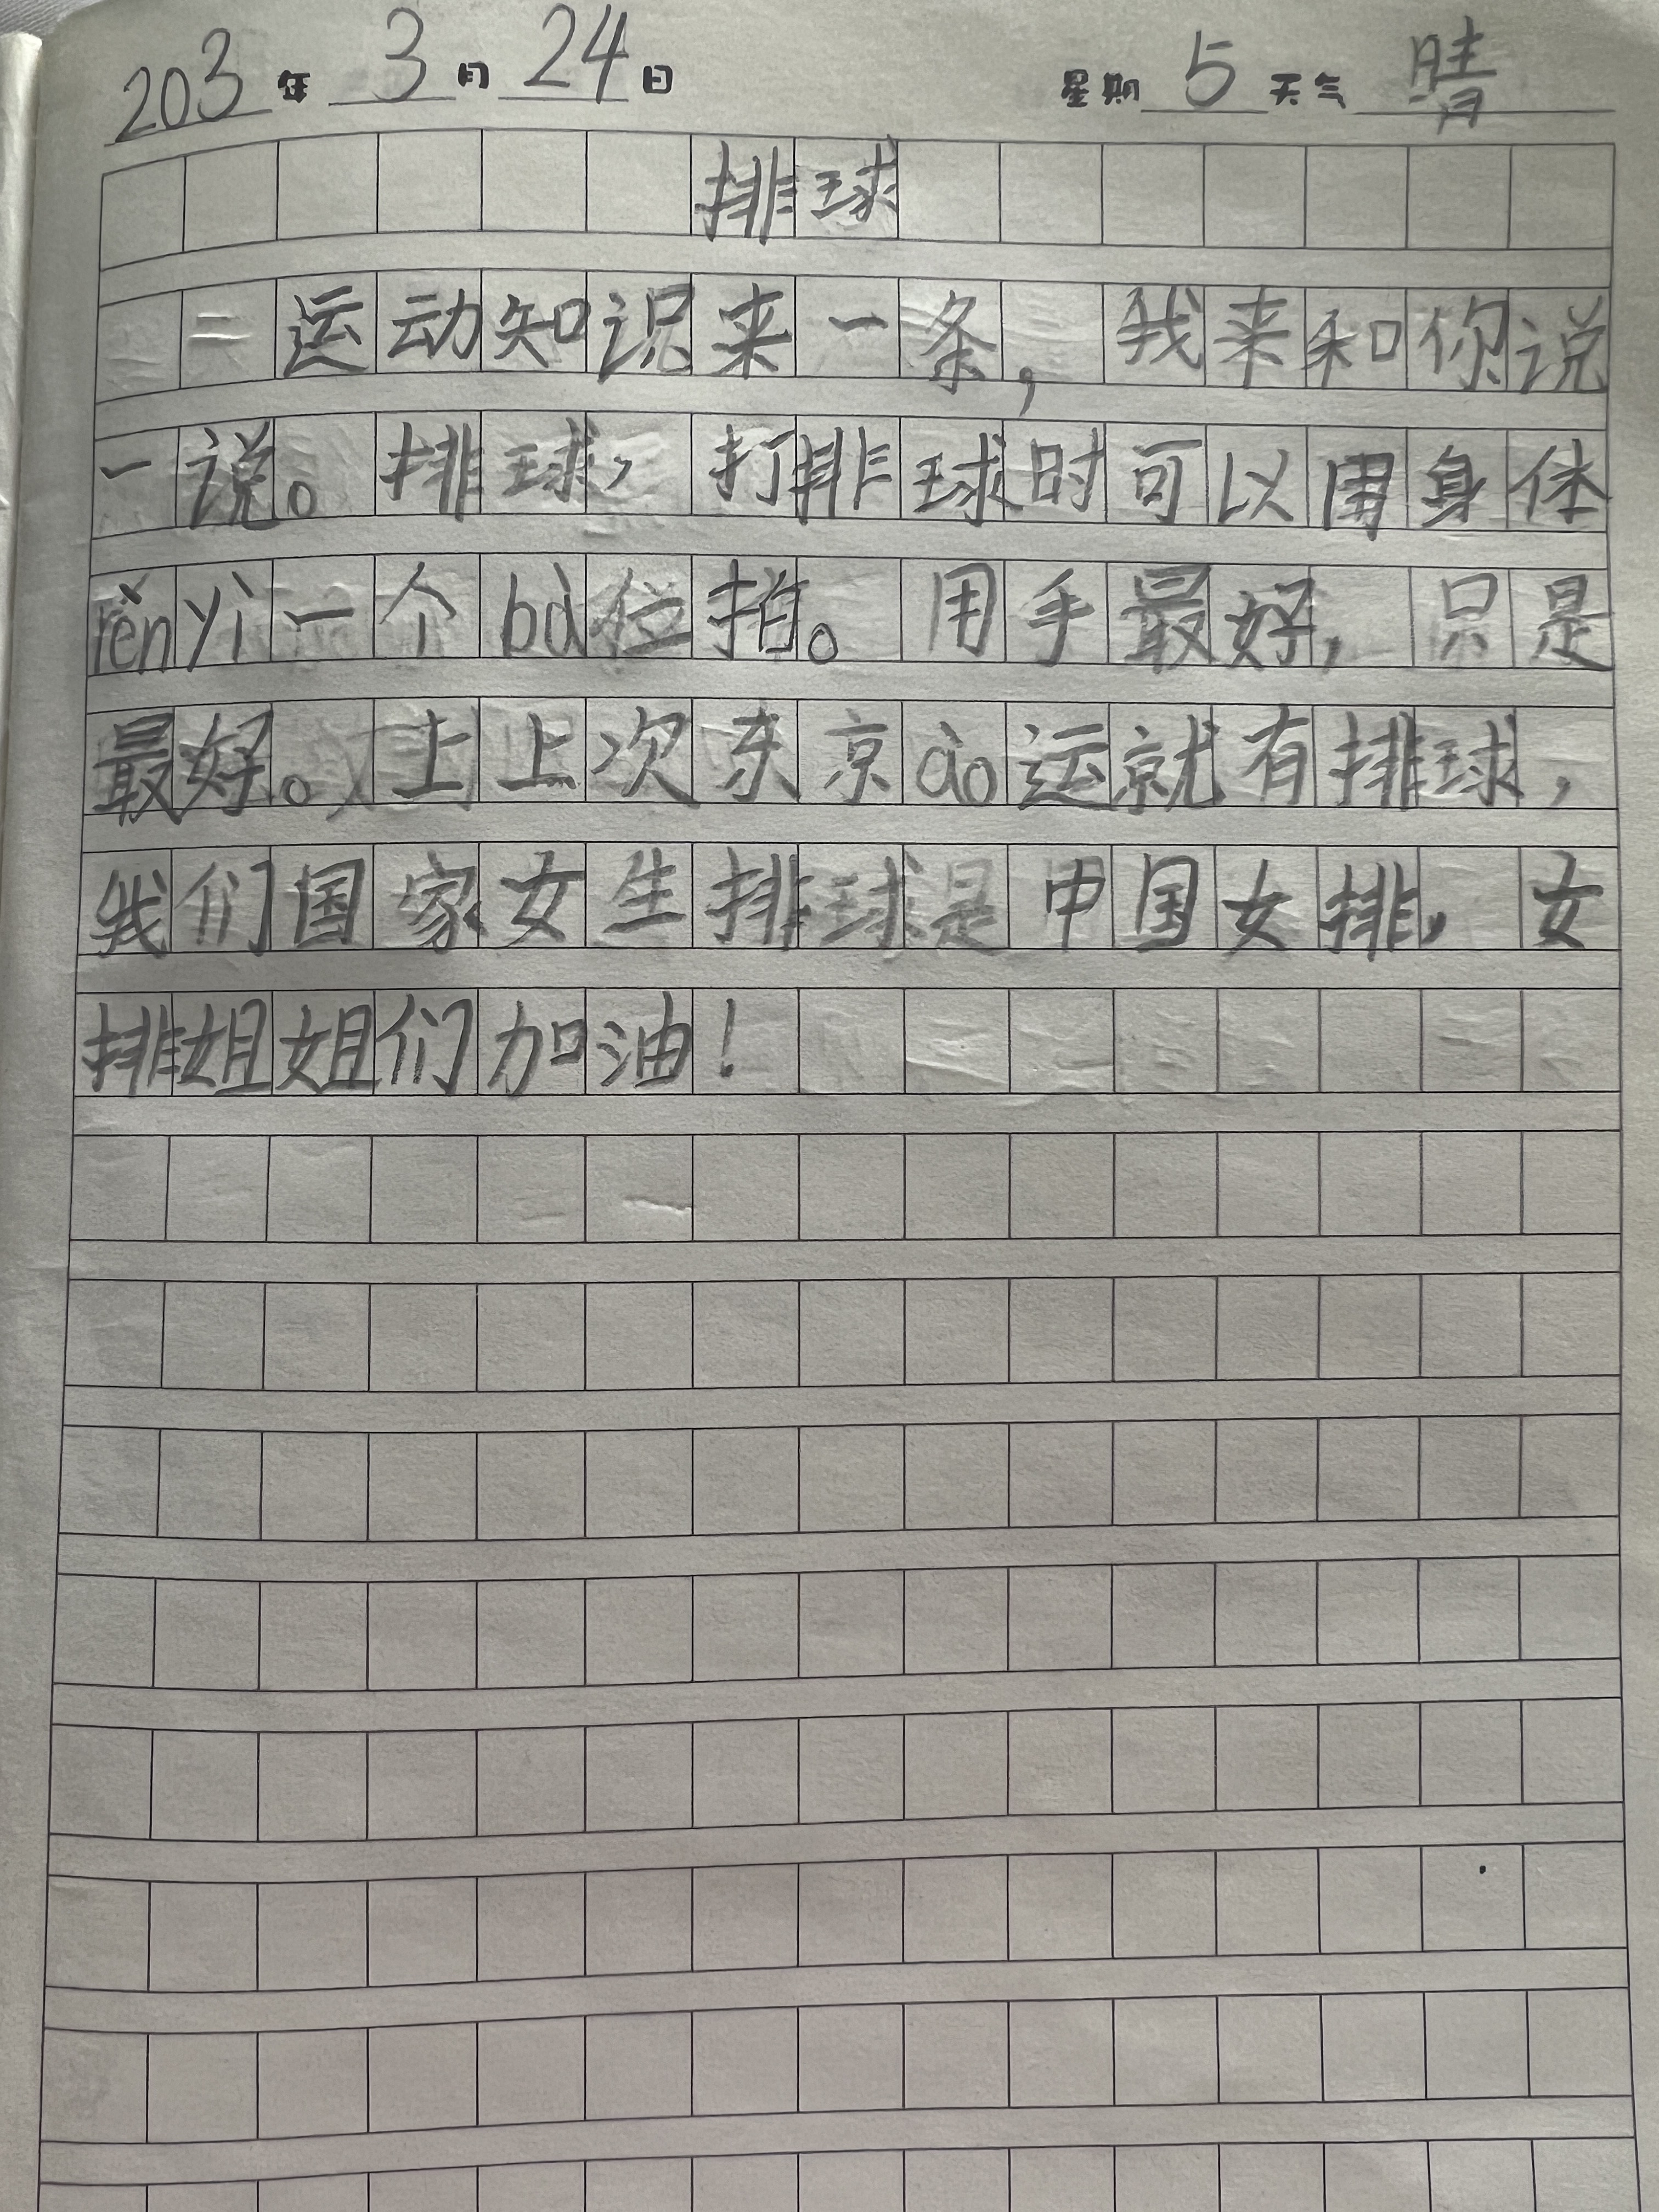 203年 3月 24日 星期 5 天气 晴
排球
运动知识来一条，我来和你说
一说。排球，打排球时可以用身体
rěn yì 一个 bù 位拍。用手最好，只是
最好。上上次东京 ào 运就有排球，
我们国家女生排球是中国女排，女
排姐姐们加油！